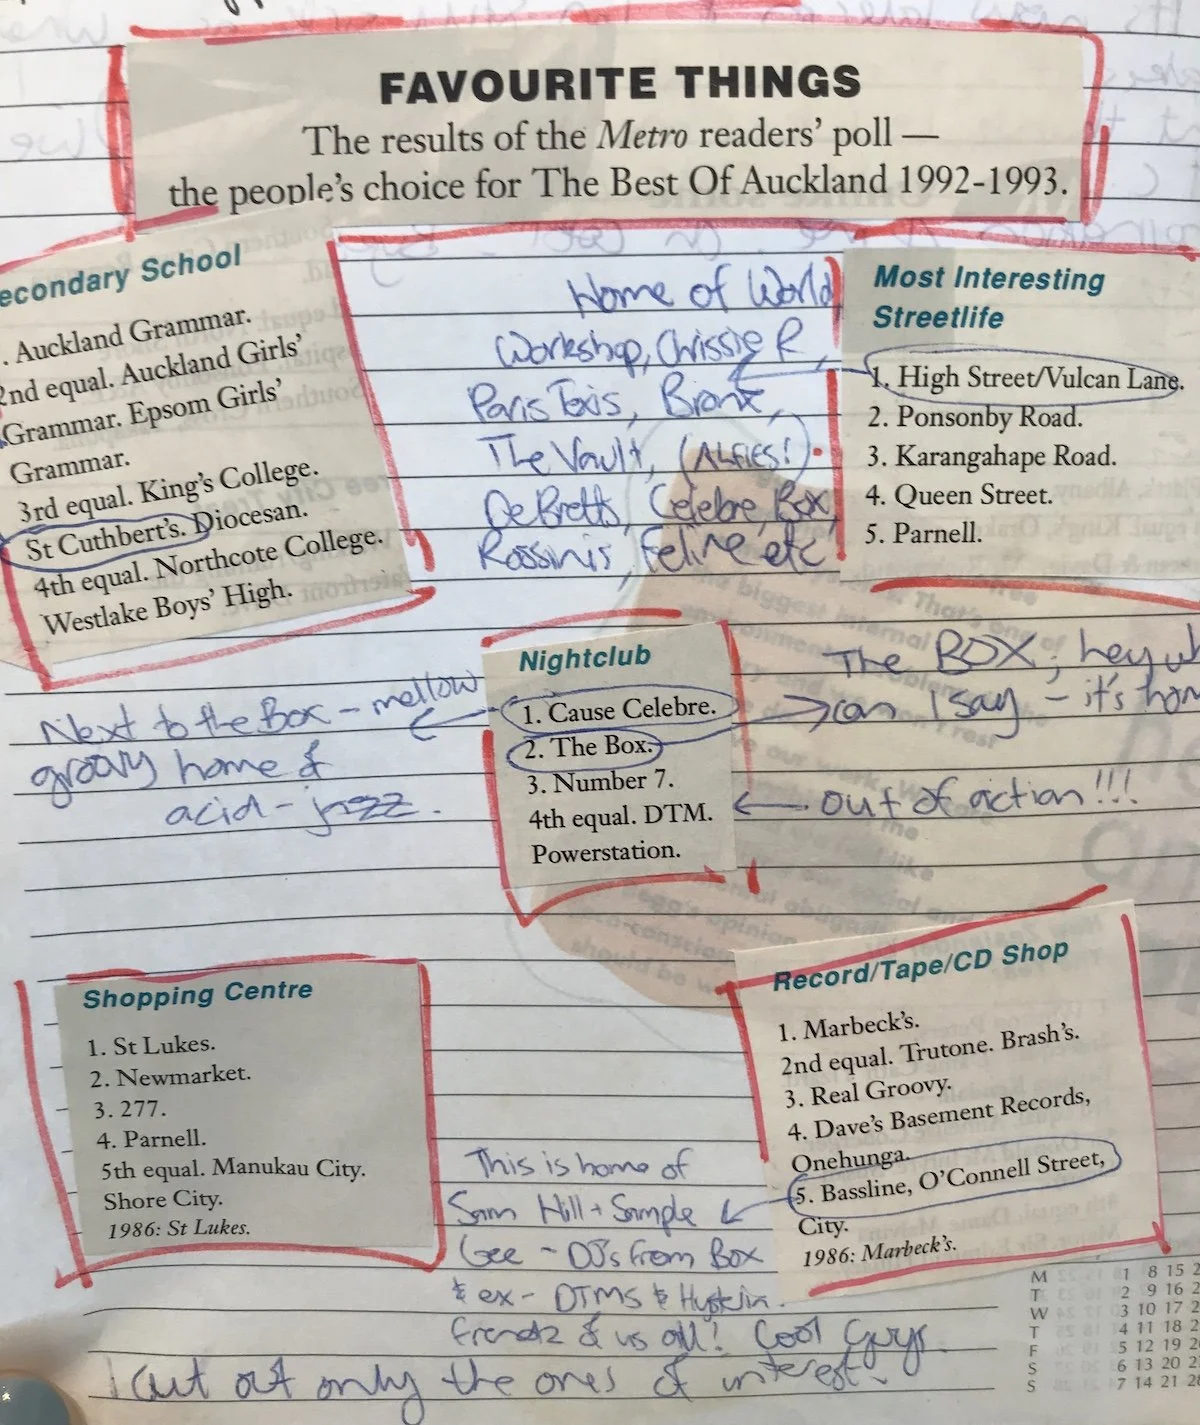 FAVOURITE THINGS
The results of the Metro readers' poll —
the people's choice for The Best Of Auckland 1992-1993.
econdary School
. Auckland Grammar.
2nd equal. Auckland Girls'
Grammar. Epsom Girls'
Grammar.
3rd equal. King's College.
St Cuthbert's. Diocesan.
4th equal. Northcote College.
Westlake Boys' High.
Home of World
Workshop, Chrissie R,
Paris Texis, Bronx,
The Vault, (ALFIES!).
DeBretts, Celebre, Box,
Rossinis, Feline etc
Most Interesting
Streetlife
1. High Street/Vulcan Lane.
2. Ponsonby Road.
3. Karangahape Road.
4. Queen Street.
5. Parnell.
Nightclub
1. Cause Celebre.
2. The Box.
3. Number 7.
4th equal. DTM.
Powerstation.
Next to the Box - mellow
groovy home of
acid-jazz.
The BOX, hey wh
can I say - it's hom
out of action!!!
Shopping Centre
1. St Lukes.
2. Newmarket.
3. 277.
4. Parnell.
5th equal. Manukau City.
Shore City.
1986: St Lukes.
Record/Tape/CD Shop
1. Marbeck's.
2nd equal. Trutone. Brash's.
3. Real Groovy.
4. Dave's Basement Records,
Onehunga.
5. Bassline, O'Connell Street,
City.
1986: Marbeck's.
This is home of
Sam Hill + Sample
Gee - DJ's from Box
& ex- DTMS &
of us all! Cool Guys.
I cut out only the ones of interest.
M 1 8 15 2
T 2 9 16 2
W 3 10 17 2
T 4 11 18 2
F 5 12 19 2
S 6 13 20 2
S 7 14 21 28